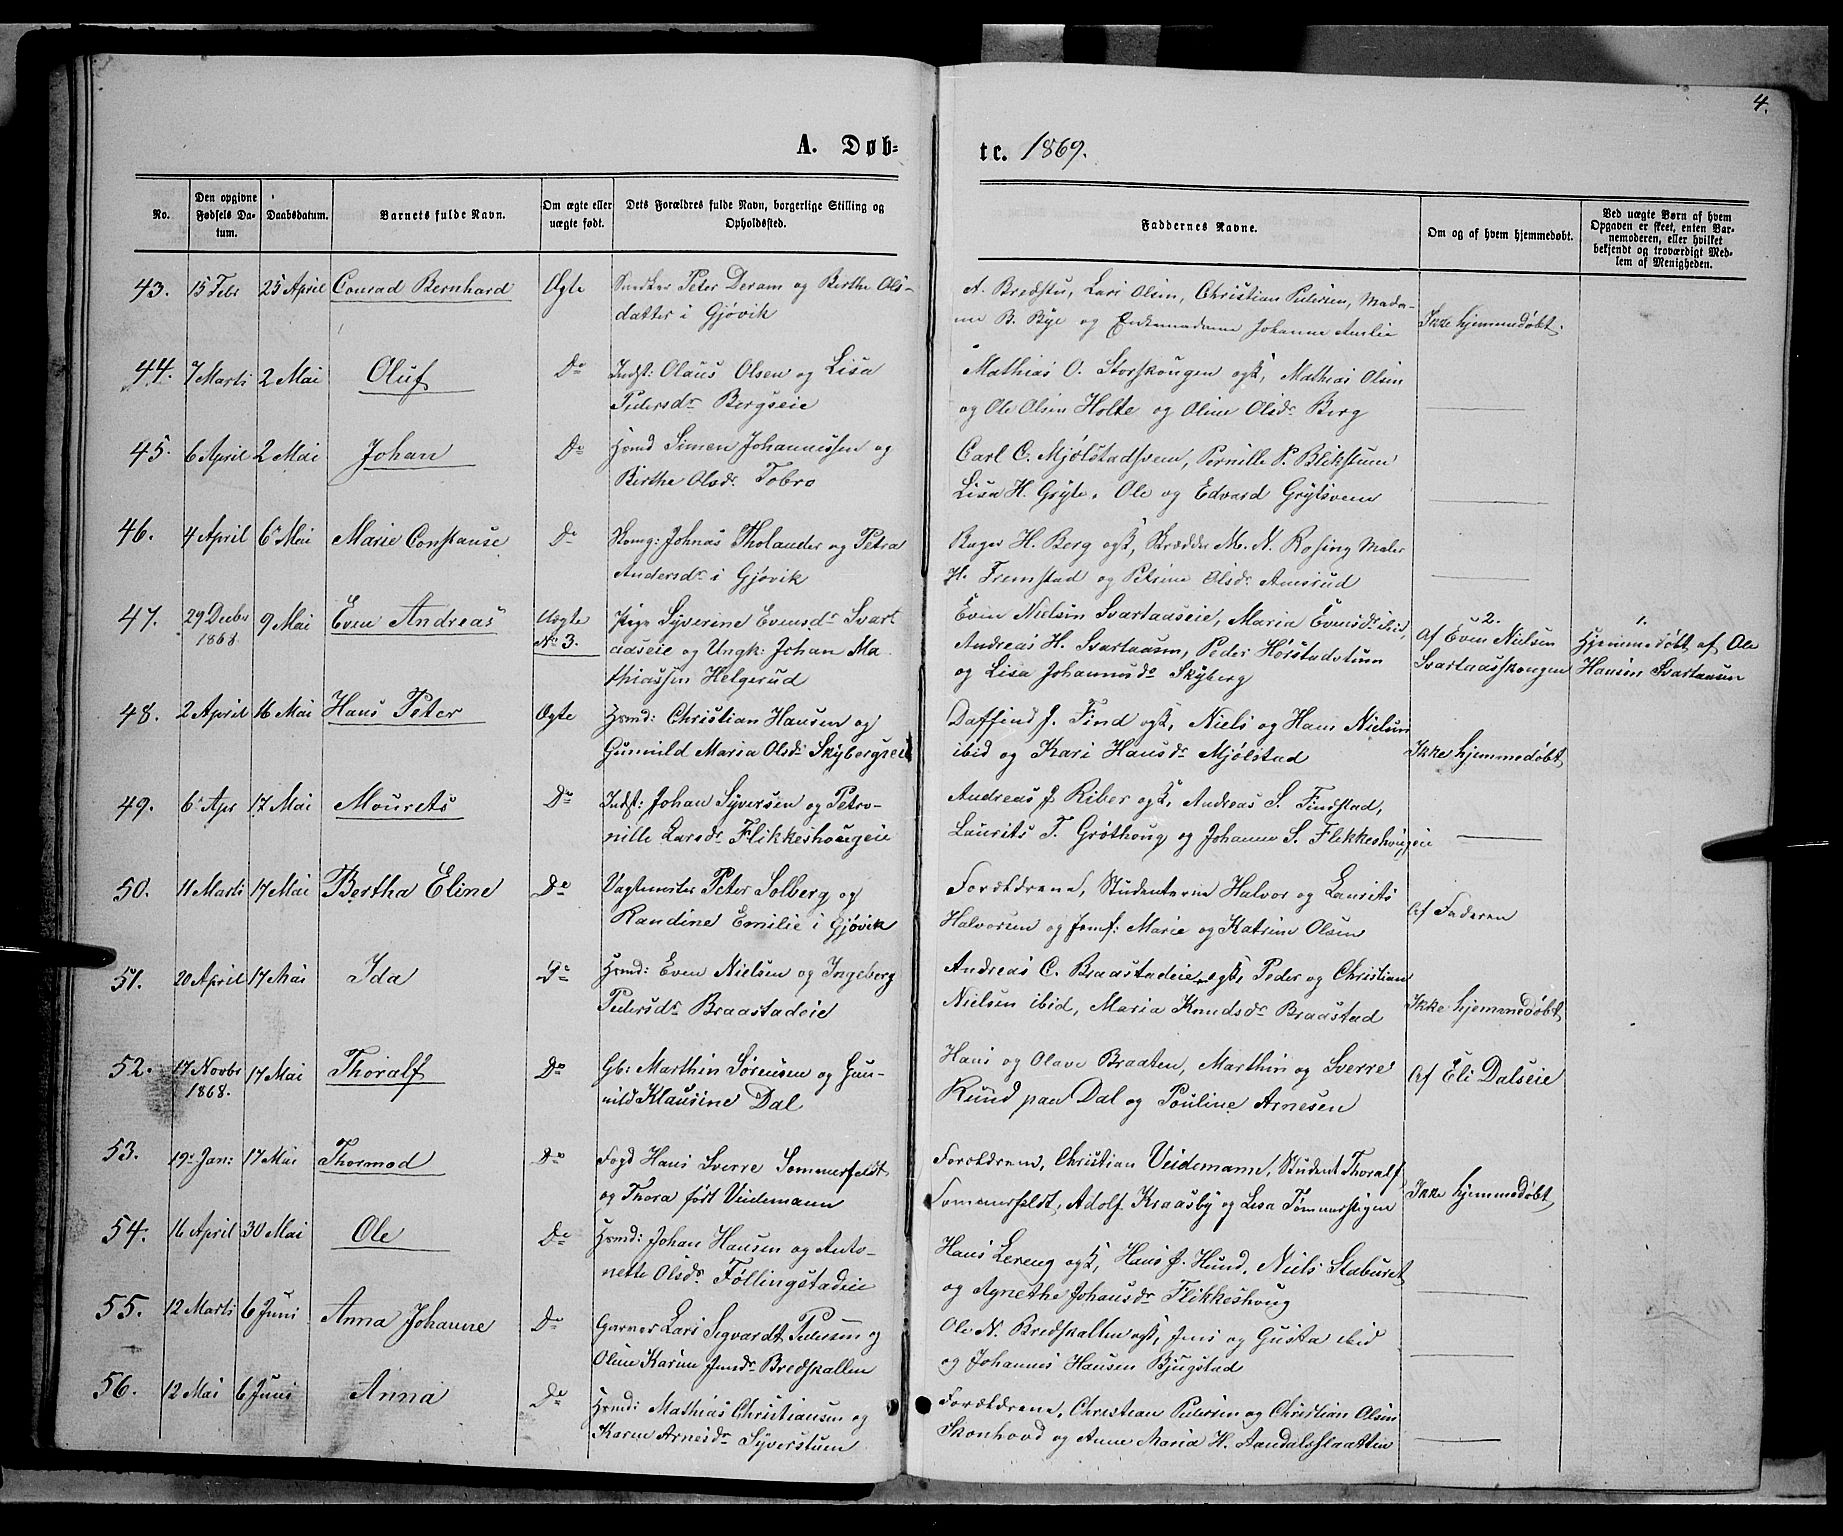 4.
A. Døb= te. 1869.
No.
Den opgivne Fødsels Da-tum.
Daabsdatum.
Barnets fulde Navn.
Om ægte eller uægte født.
Dets Forældres fulde Navn, borgerlige Stilling og Opholdssted.
Faddernes Navne.
Om og af hvem hjemmedøbt.
Ved uægte Børn af hvem Opgaven er skeet, enten Bar-nemoderen, eller hvilket bekjendt og troværdigt Med-lem af Menigheden.
43. 15 Febr 25 April Conrad Bernhard Ægte Peter Deram og Berthe Ols-
datter i Gjøvik
A. Bredstu, Lars Olsen, Christian Pedersen, Mada-
me B. Bye og Johanne Amlie Ikke hjemmedøbt.
44. 7 Marts 2 Mai Oluf Do Indst: Olaus Olsen og Lisa
Pedersdr Bergseie
Mathias O. Storskougen ogk, Mathias Olsen
og Ole Olsen Holte og Oline Olsdr Berg
45. 6 April 2 Mai Johan Do Hsmd Simen Johannessen og
Birthe Olsdr. Tobro
Carl C. Mjølstadsven, Pernille P. Blikstum
Lisa H. Gryte, Ole og Edvard Grytsveen
46. 4 April 6 Mai Marie Constanse Do Johnas Tholander og Petra
Andersdr i Gjøvik
Bager H. Berg ogk, Skrædder M. N. Rosing Maler
H. Fremstad og Petrine Olsdr Amsrud
47. 29 Decbr 1868 9 Mai Even Andreas Uægte No 3. Pige Syverine Evensdr Svart
aaseie og Ungk: Johan Ma
thiassen Helgerud
Even Nielsen Svartaaseie, Maria Evensdr ibid,
Andreas H. Svartaasen, Peder Hørstadstuen
og Lisa Johannesdr Skyberg
2.
Af Even Nielsen
Svartaasskougen
1.
Hjemmedøbt af Ole
Hansen Svartaasen
48. 2 April 16 Mai Hans Peter Ægte Hsmd: Christian Hansen og
Gunnild Maria Olsdr Skybergseie
Daffind J. Find ogk, Niels og Hans Nielsen
ibid og Kari Hansdr Mjølstad Ikke hjemmedøbt
49. 6 Apr 17 Mai Mourets Do Indst: Johan Syversen og Petro-
nille Larsdr Flikkeshougeie
Andreas J Riber ogk, Andreas S. Findstad,
Laurits T. Grøthoug og Johanne S. Flikkeshougeie
50. 11 Marts 17 Mai Bertha Eline Do Vagtmester Peter Solberg og
Randine Emilie i Gjøvik
Forældrene, Studenterne Halvor og Laurits
Halvorsen og Jomf: Marie og Katrine Olsen Af Faderen
51. 20 April 17 Mai Ida Do Hsmd: Even Nielsen og Ingeberg
Pedersdr Braastadeie
Andreas C. Braastadeie ogk, Peder og Christian
Nielsen ibid, Maria Knudsdr Braastad Ikke hjemmedøbt
52. 17 Novbr 1868. 17 Mai Thoralf Do Gb: Marthin Sørensen og Gun-
nild Klausine Dal
Hans og Olave Braaten, Marthin og Sverre
Rund paa Dal og Pouline Arnesen Af Eli Dalseie
53. 19 Jan: 17 Mai Thormod Do Fogd Hans Sverre Sommerfeldt
og Thora født Veidemann
Forældrene, Christian Veidemann, Student Thoralf
Sommerfeldt, Adolf Kraasby og Lisa Tømmerstigen Ikke hjemmedøbt
54. 16 April 30 Mai Ole Do Hsmd: Johan Hansen og Anto-
nette Olsdr Føllingstadeie
Hans Lereng ogk, Hans J. Hund, Niels Staburet
og Agnethe Johansdr Flikkeshoug
55. 12 Marts 6 Juni Anna Johanne Do Garver Lars Segvardt Pedersen og
Oline Karine Jensdr Bredskallen
Ole N. Bredskallen ogk, Jens og Gusta ibid
og Johannes Hansen Bjugstad
56. 12 Mai 6 Juni Anna Do Hsmd: Mathias Christiansen og
Karen Arnesdr Syverstuen
Forældrene, Christian Pedersen og Christian Olsen
Skonhovd og Anne Maria H. Aandalsslaatten